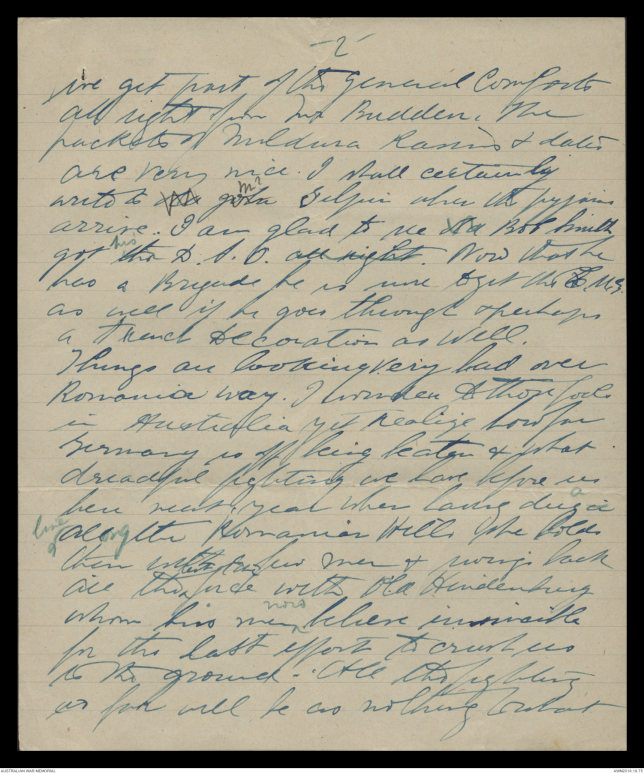 -2-
we get part of the General Comforts
all right from Mr Budden. The
packets of Mildura Raisins & dates
are very nice. I shall certainly
write to Mr Gilpin when the pyjamas
arrive. I am glad to see Bob Smith
got his D.S.O. all right. Now that he
has a Brigade he is sure to get the C.M.G.
as well if he goes through & perhaps
a French Decoration as well.
Things are looking very bad over
Romania way. I wonder do those fools
in Australia yet realize how far
Germany is off being beaten & what
dreadful fighting we have before us
here next year when having dug a
line along all the Romanian Hills she holds
them with a few men & swings back
all this force with Old Hindenburg
whom his men now believe invincible
for the last effort to crush us
to the ground. All the fighting
so far will be as nothing to what
AUSTRALIAN WAR MEMORIAL